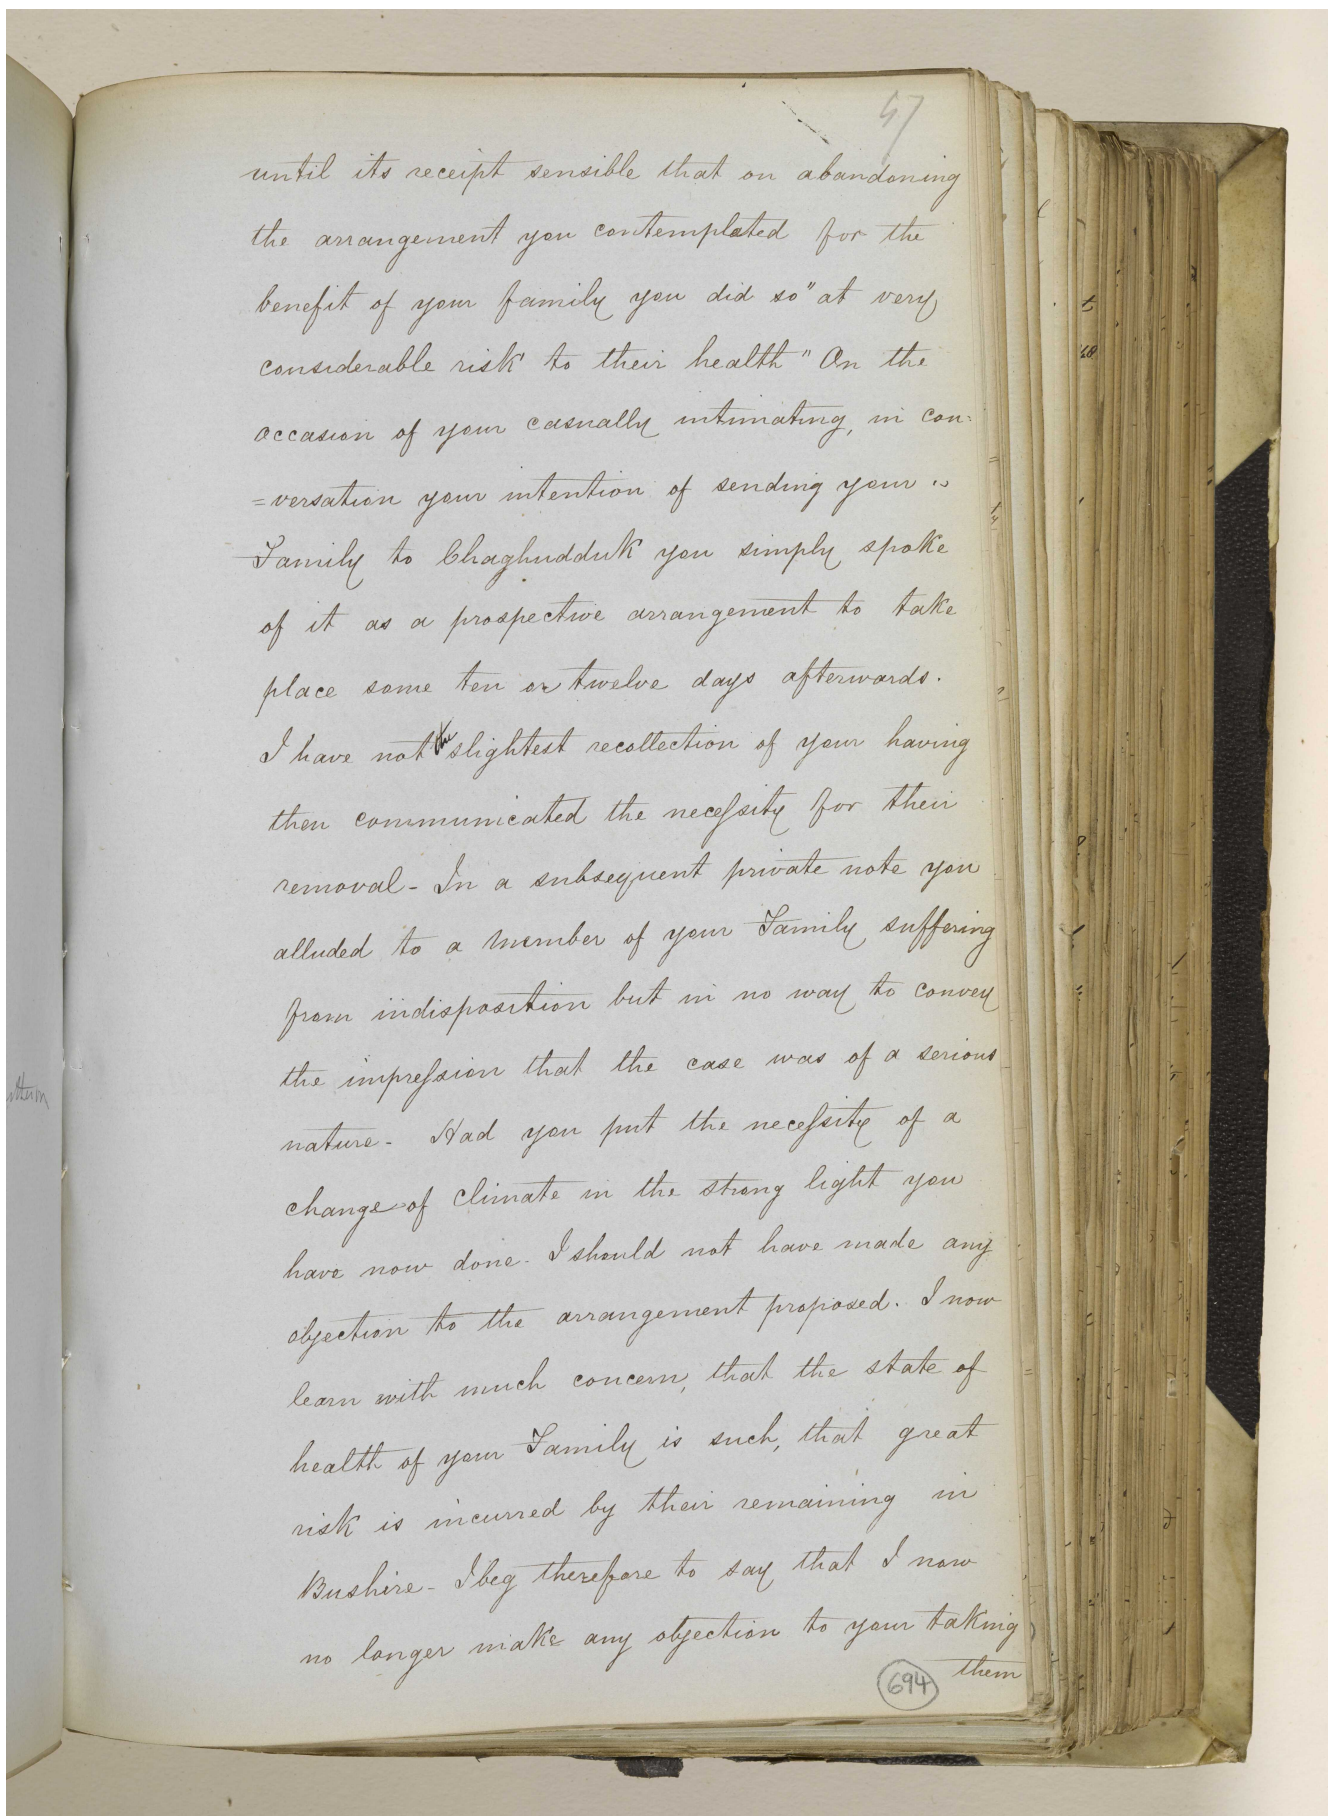 57
until its receipt sensible that on abandoning
the arrangement you contemplated for the
benefit of your family you did so "at very
considerable risk to their health" On the
occasion of your casually intimating, in con:
=versation your intention of sending your "
Family to Chaghudduk you simply spoke
of it as a prospective arrangement to take
place some ten or twelve days afterwards.
I have not the slightest recollection of your having
then communicated the necessity for their
removal - In a subsequent private note you
alluded to a member of your Family suffering
from indisposition but in no way to convey
the impression that the case was of a serious
nature - Had you put the necessity of a
change of climate in the strong light you
have now done - I should not have made any
objection to the arrangement proposed. I now
learn with much concern, that the state of
health of your Family is such, that great
risk is incurred by their remaining in
Bushire - I beg therefore to say that I now
no longer make any objection to your taking
them
694